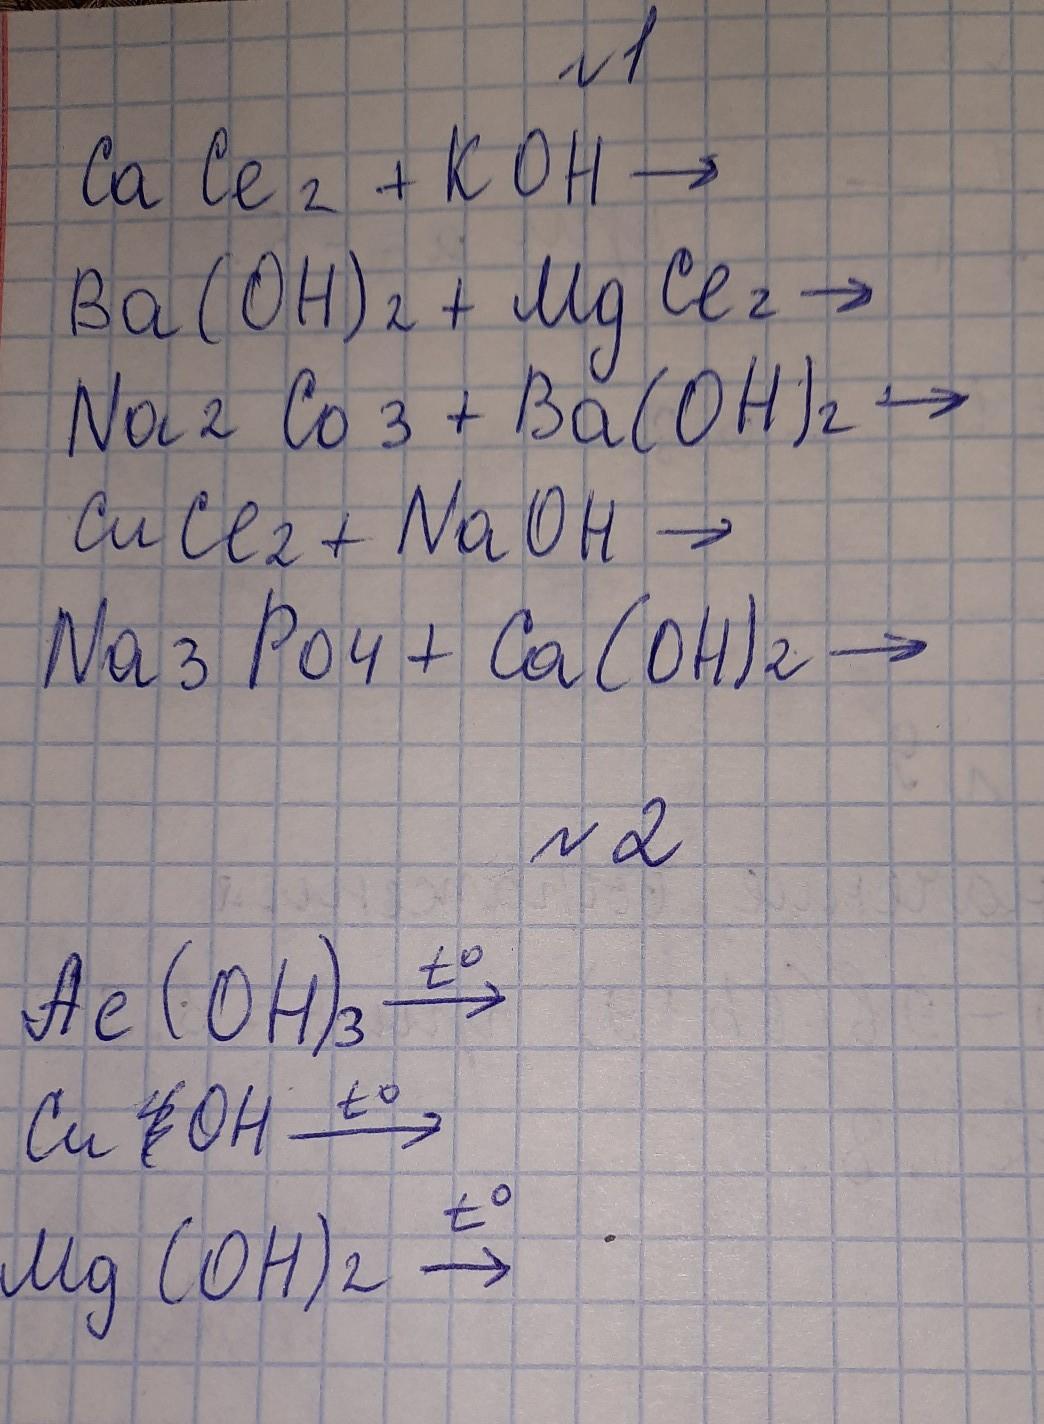 №1
CaCl2 + KOH →
Ba(OH)2 + MgCl2 →
Na2 CO3 + Ba(OH)2 →
CuCl2 + NaOH →
Na3 PO4 + Ca(OH)2 →
№2
Al(OH)3 t° →
Cu OH t° →
Mg(OH)2 t° →